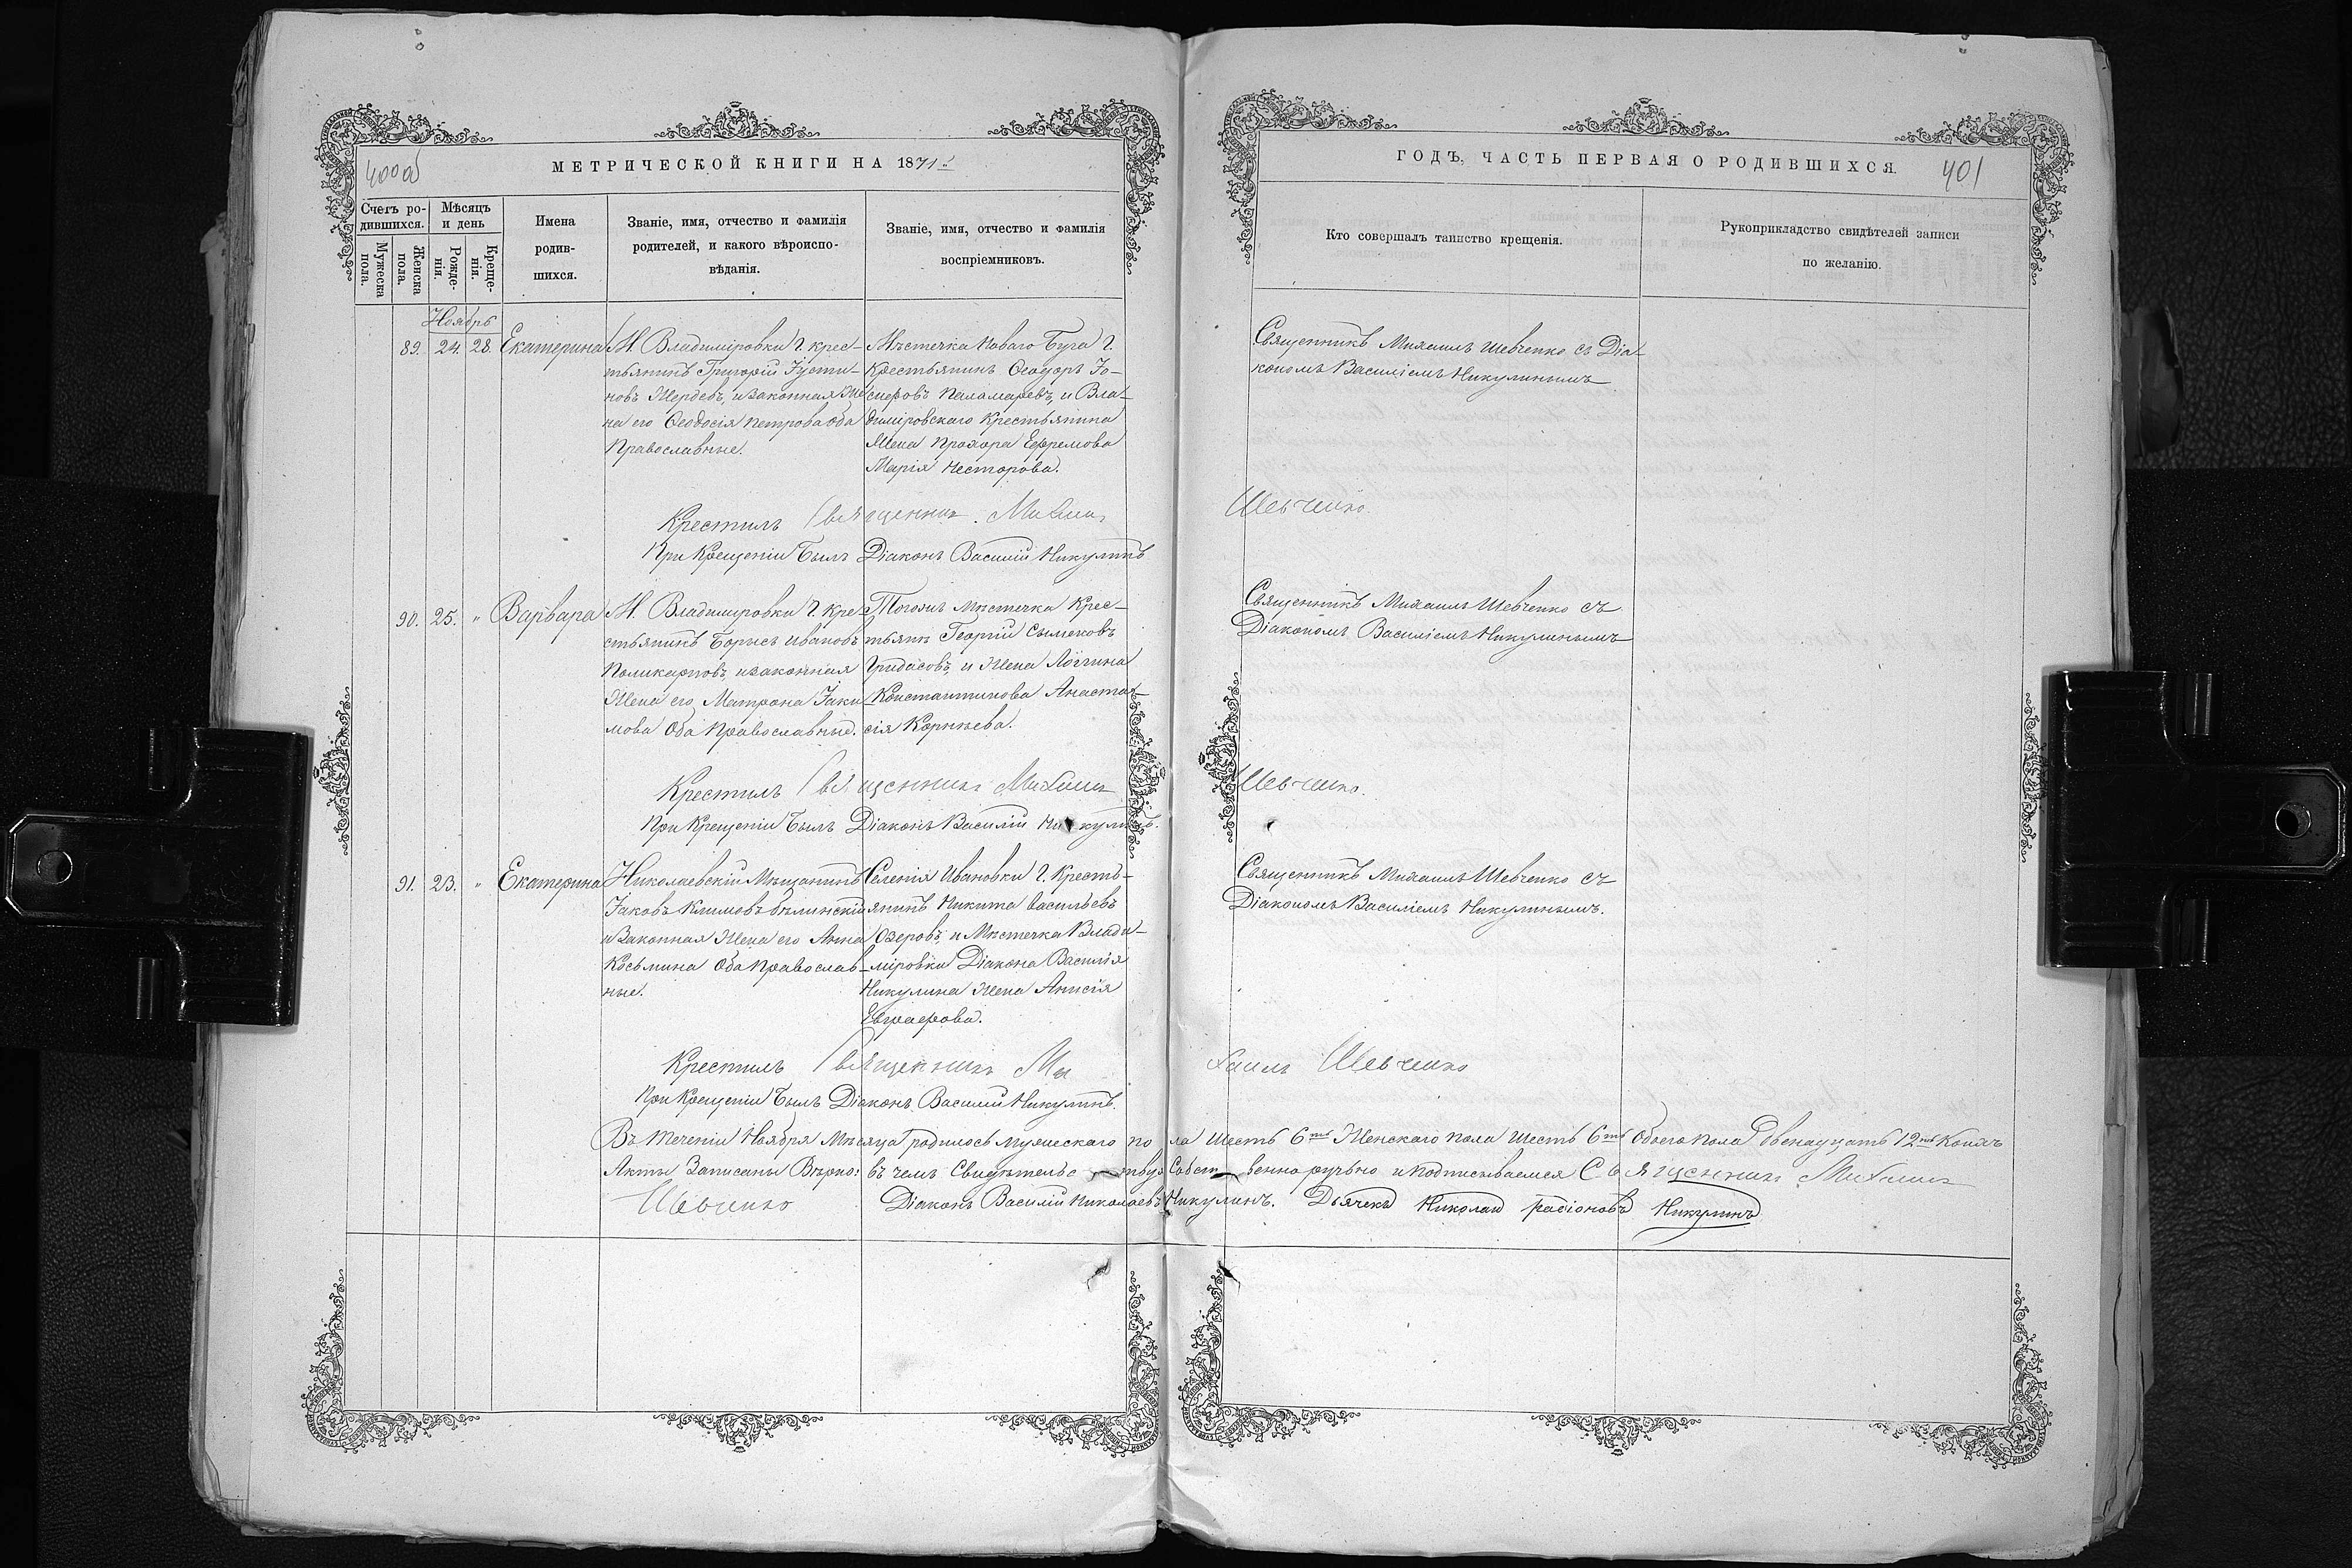 400 об
МЕТРИЧЕСКОЙ КНИГИ НА 1871 г.
Счетъ родившихся.
Мѣсяцъ и день
Мужеска пола.
Женска пола.
Рожденія.
Крещенія.
Имена родившихся.
Званіе, имя, отчество и фамилія родителей, и какого вѣроисповѣданія.
Званіе, имя, отчество и фамилія воспріемниковъ.
ГОДЪ, ЧАСТЬ ПЕРВАЯ О РОДИВШИХСЯ.
401
Кто совершалъ таинство крещенія.
Рукоприкладство свидѣтелей записи по желанію.
Ноябрь
89. 24. 28. Екатерина
М. Владиміровки Г. крес-
тьянинъ Григорій Іусти-
новъ Жердевъ, и законная же
на его Ѳеодосія Петрова оба
Православные.
Мѣстечка Новаго Буга Г.
Крестьянинъ Ѳеодоръ Іо-
сифовъ Паламаревъ, и Вла-
диміровскаго Крестьянина
Жена Прохора Ефремова
Марія Несторова.
Священникъ Михаилъ Шевченко съ Діа-
кономъ Василіемъ Никулинымъ
Крестилъ Священникъ Михаилъ Шевченко.
При Крещеніи Былъ Діаконъ Василій Никулинъ
90. 25. " Варвара
М. Владиміровки Г. Кре-
стьянинъ Борисъ Ивановъ
Поликарповъ, и законная
Жена его Матрона Іаки
мова Оба Православные.
Тогожъ Мѣстечка Крес-
тьянинъ Георгій Сыменовъ
Гридасовъ, и Жена Логгина
Константинова Анаста-
сія Корнѣева.
Священникъ Михаилъ Шевченко съ
Діакономъ Василіемъ Никулинымъ
Крестилъ Священникъ Михаилъ Шевченко.
При Крещеніи Былъ Діаконъ Василій Никулинъ.
91. 23. " Екатерина
Николаевскій Мѣщанинъ
Іаковъ Климовъ Бѣлинскій
и Законная Жена его Анна
Косьмина Оба Православ-
ные.
Селенія Ивановки Г. Кресть-
янинъ Никита Васильевъ
Озеровъ, и Мѣстечка Влади-
міровки Діакона Василія
Никулина Жена Анисія
Евграфова.
Священникъ Михаилъ Шевченко съ
Діакономъ Василіемъ Никулинымъ.
Крестилъ Священникъ Михаилъ Шевченко
При Крещеніи Былъ Діаконъ Василій Никулинъ.
Въ теченіи Ноября Мѣсяца родилось мужескаго пола Шесть 6ть Женскаго пола Шесть 6ть Обоего пола Двенадцать 12ть Коихъ
Акты Записаны Вѣрно: въ чемъ Свидѣтельствуя Собственноручьно и подписываемся Священникъ Михаилъ
Шевченко Діаконъ Василій Николаевъ Никулинъ. Дьячекъ Николай Радіоновъ Никулинъ